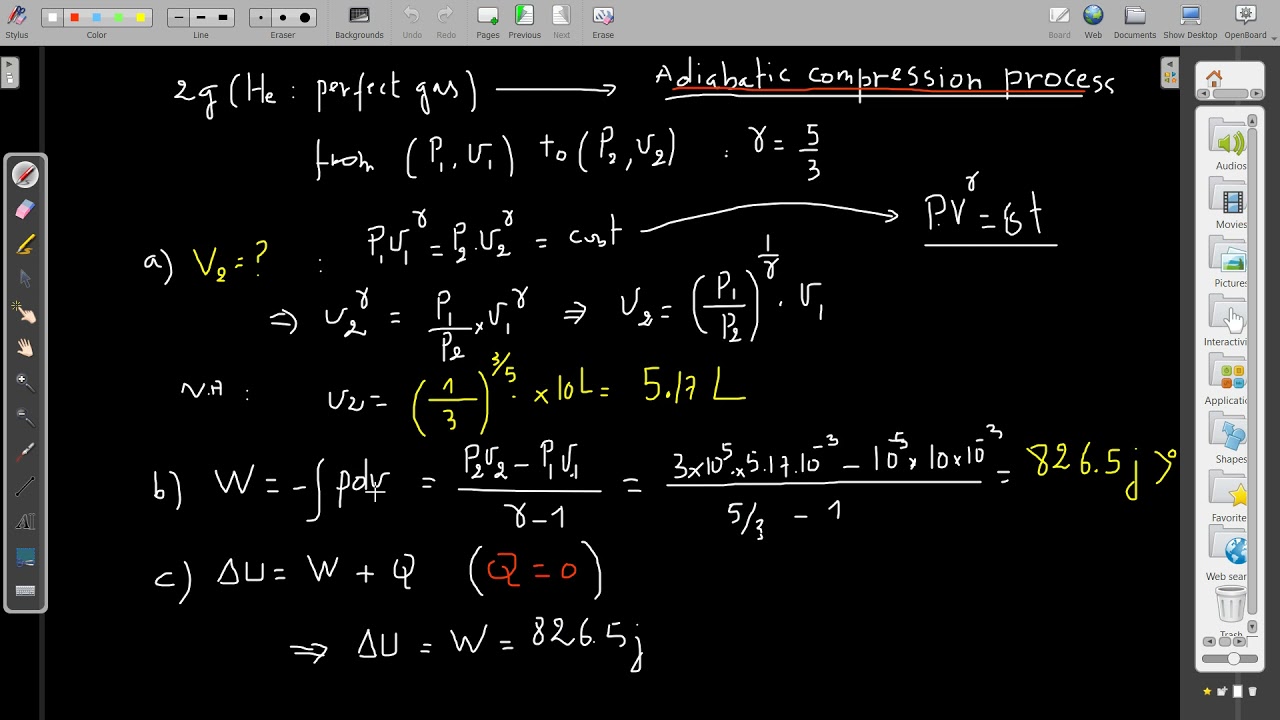 Stylus Color Line Eraser Backgrounds Undo Redo Pages Previous Next Erase Board Web Documents Show Desktop OpenBoard
2g (He : perfect gas) ⟶ Adiabatic compression process
from (P₁, V₁) to (P₂, V₂) : γ = 5/3
a) V₂ = ? : P₁V₁^γ = P₂.V₂^γ = cust ⟶ P.V^γ = Cst
⇒ V₂^γ = P₁/P₂ × V₁^γ ⇒ V₂ = (P₁/P₂)^(1/γ) . V₁
N.A : V₂ = (1/3)^(3/5) . × 10L = 5.17 L
b) W = -∫ pdv = (P₂V₂ - P₁V₁)/(γ - 1) = (3×10⁵.×5.17.10⁻³ - 10⁵ × 10×10⁻³)/(5/3 - 1) = 826.5 j >0
c) ΔU = W + Q (Q = 0)
⇒ ΔU = W = 826.5 j
Audios
Movies
Pictures
Interactivi
Applicatio
Shapes
Favorite
Web sear
Trash